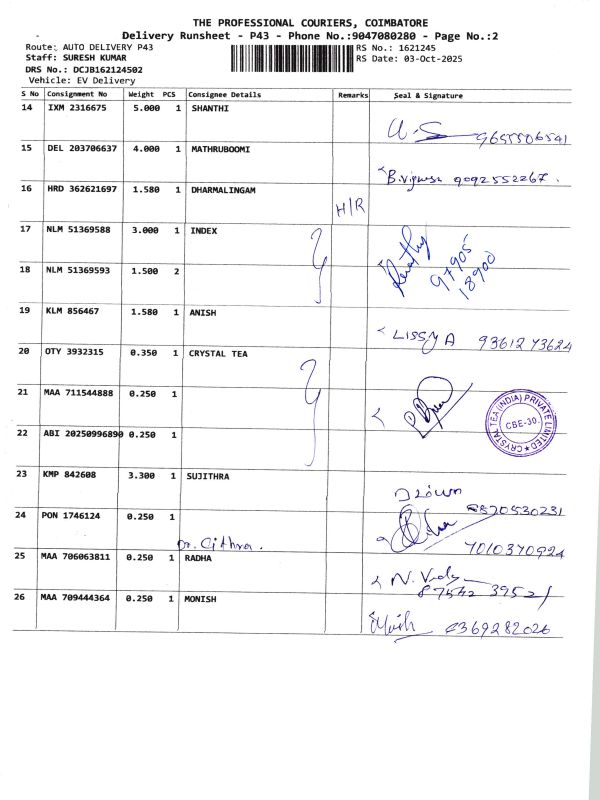 THE PROFESSIONAL COURIERS, COIMBATORE
Delivery Runsheet - P43 - Phone No.:9047080280 - Page No.:2
Route: AUTO DELIVERY P43 RS No.: 1621245
Staff: SURESH KUMAR RS Date: 03-Oct-2025
DRS No.: DCJB162124502
Vehicle: EV Delivery
S No Consignment No Weight PCS Consignee Details Remarks Seal & Signature
14 IXM 2316675 5.000 1 SHANTHI
9655506541
15 DEL 203706637 4.000 1 MATHRUBOOMI
9092552267.
16 HRD 362621697 1.580 1 DHARMALINGAM
H/R
17 NLM 51369588 3.000 1 INDEX
97905
18900
18 NLM 51369593 1.500 2
19 KLM 856467 1.580 1 ANISH
LISSY A 9361273624
20 OTY 3932315 0.350 1 CRYSTAL TEA
21 MAA 711544888 0.250 1
CRYSTAL TEA (INDIA) PRIVATE LIMITED
CBE-30.
22 ABI 20250996890 0.250 1
23 KMP 842608 3.300 1 SUJITHRA
8870530231
24 PON 1746124 0.250 1
Dr. Githra.
7010370924
25 MAA 706063811 0.250 1 RADHA
87542 39521
26 MAA 709444364 0.250 1 MONISH
6369282026